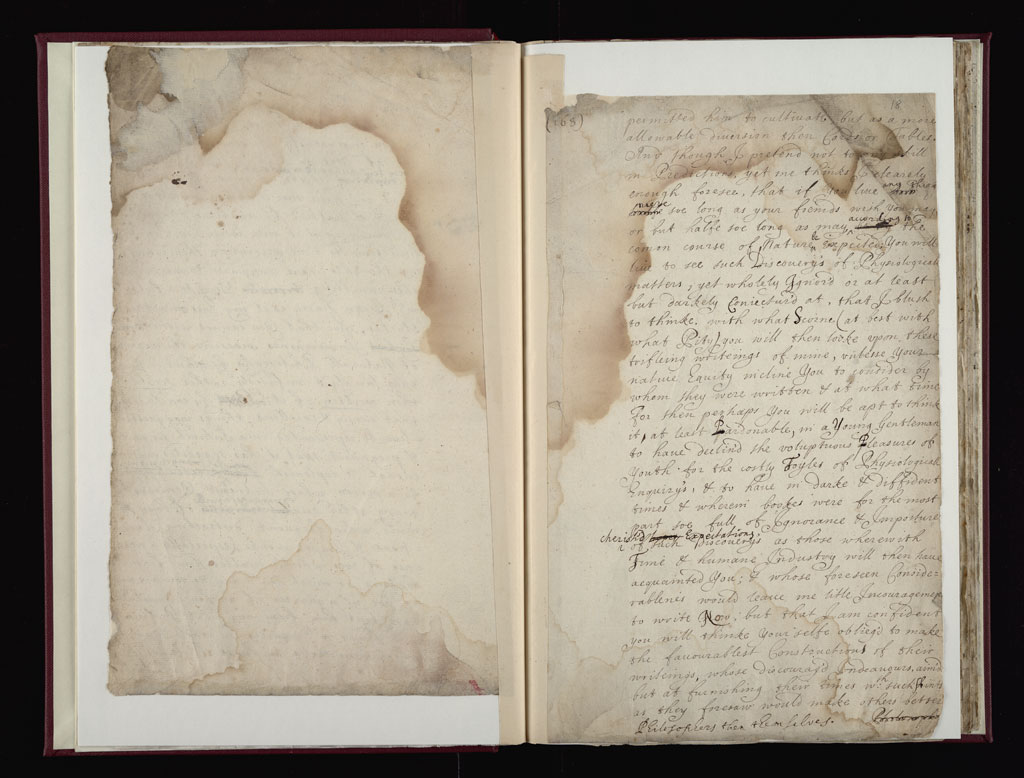 18
(168)
permitted him to cultivate but as a more
allowable diversion then Cards or Tables.
And though I pretend not to any skill
in Predictions, yet me thinks I clearely
enough foresee, that if you live
soe long as your freinds wish you may
or but halfe soe long as may according to the
comon course of Nature be Expected, You will
live to see such Discoverys of Physiologicall
matters, yet wholely Ignor'd or at least
but darkely Coniectur'd at, that I blush
to thinke, with what Scorne (at best with
what Pity) you will then looke upon these
trifleing writeings of mine, unlesse Your
nature Equity incline You to consider by
whom they were written & at what time
For then perhaps You will be apt to think
it, at least Pardonable, in a Young Gentleman
to have declin'd the voluptuous Pleasures of
Youth for the costly Toyles of Physiologicall
Enquiry's, & to have in darke & diffident
times & wherein bookes were for the most
part soe full of Ignorance & Imposture
cherish'd Expectations
of such Discoverys as those wherewith
Time & humane Industry will then have
acquainted You; & whose foreseen Conside-
rablenes would leave me little Incouragement
to write Now, but that I am confident
you will thinke Your selfe oblieg'd to make
the favourablest Constructions of their
writeings, whose discourag'd Endeavours, aim'd
but at furnishing their times wth such Hints
as they foresaw would make others better
Philosophers then themselves.